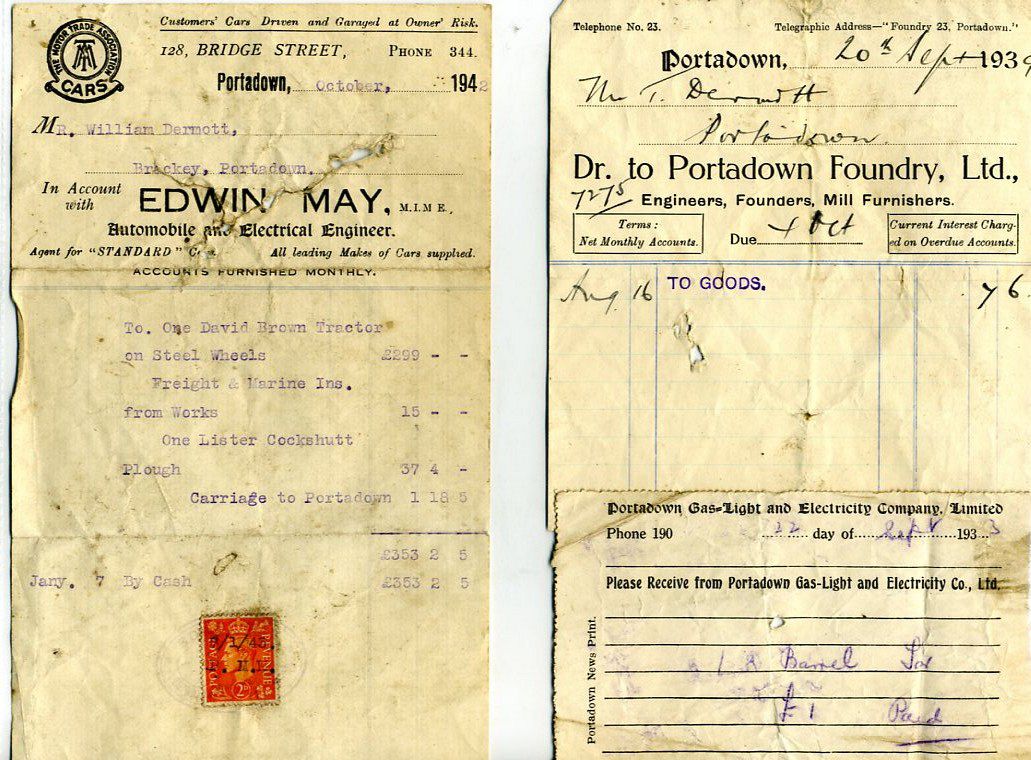 Customers' Cars Driven and Garaged at Owner' Risk.
THE MOTOR TRADE ASSOCIATION
MTA
CARS
128, BRIDGE STREET, PHONE 344.
Portadown, October, 1942
MR. William Dermott,
Brackey, Portadown.
In Account with EDWIN MAY, M.I.M.E.,
Automobile and Electrical Engineer.
Agent for "STANDARD" All leading Makes of Cars supplied.
ACCOUNTS FURNISHED MONTHLY.
To. One David Brown Tractor
on Steel Wheels £299 - -
Freight & Marine Ins.
from Works 15 - -
One Lister Cockshutt
Plough 37 4 -
Carriage to Portadown 1 18 5
£353 2 5
Jany. 7 By Cash £353 2 5
POSTAGE REVENUE
/1/43.
2D
Telephone No. 23. Telegraphic Address—"Foundry 23, Portadown."
Portadown, 20th Sept 1939
Mr T. Dermott
Portadown
Dr. to Portadown Foundry, Ltd.,
7275 Engineers, Founders, Mill Furnishers.
Terms: Net Monthly Accounts.
Due 4 Oct
Current Interest Charged on Overdue Accounts.
Aug 16 TO GOODS. 7 6
Portadown Gas-Light and Electricity Company, Limited
Phone 190 22 day of Sept 1933
Please Receive from Portadown Gas-Light and Electricity Co., Ltd.
1 Barrel Tar
£1 Paid
Portadown News Print.